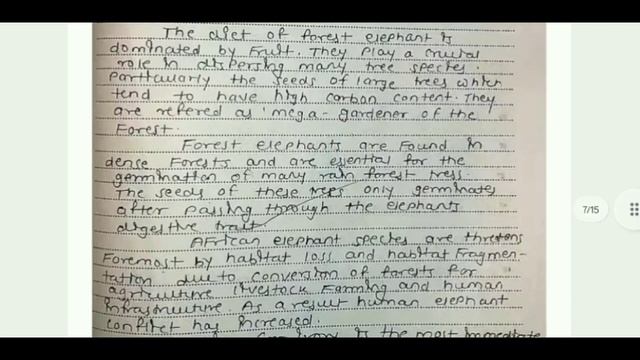 The diet of forest elephant is
dominated by Fruit. They play a crucial
role in dispersing many tree species.
Particularly the seeds of large trees which
tend to have high carbon content. They
are refered as 'mega-gardener of the
Forest.
Forest elephants are found in
dense Forests and are essential for the
germination of many rain forest tress
The seeds of these trees only germinates
after passing through the elephants
digestive trait
African elephant species are
Foremost by habitat loss and habitat Fragmen-
tation due to conversion of forests for
livestock Farming and human
infrastructure. As a result human elephant
conflict has increased.
is the most immediate
7/15